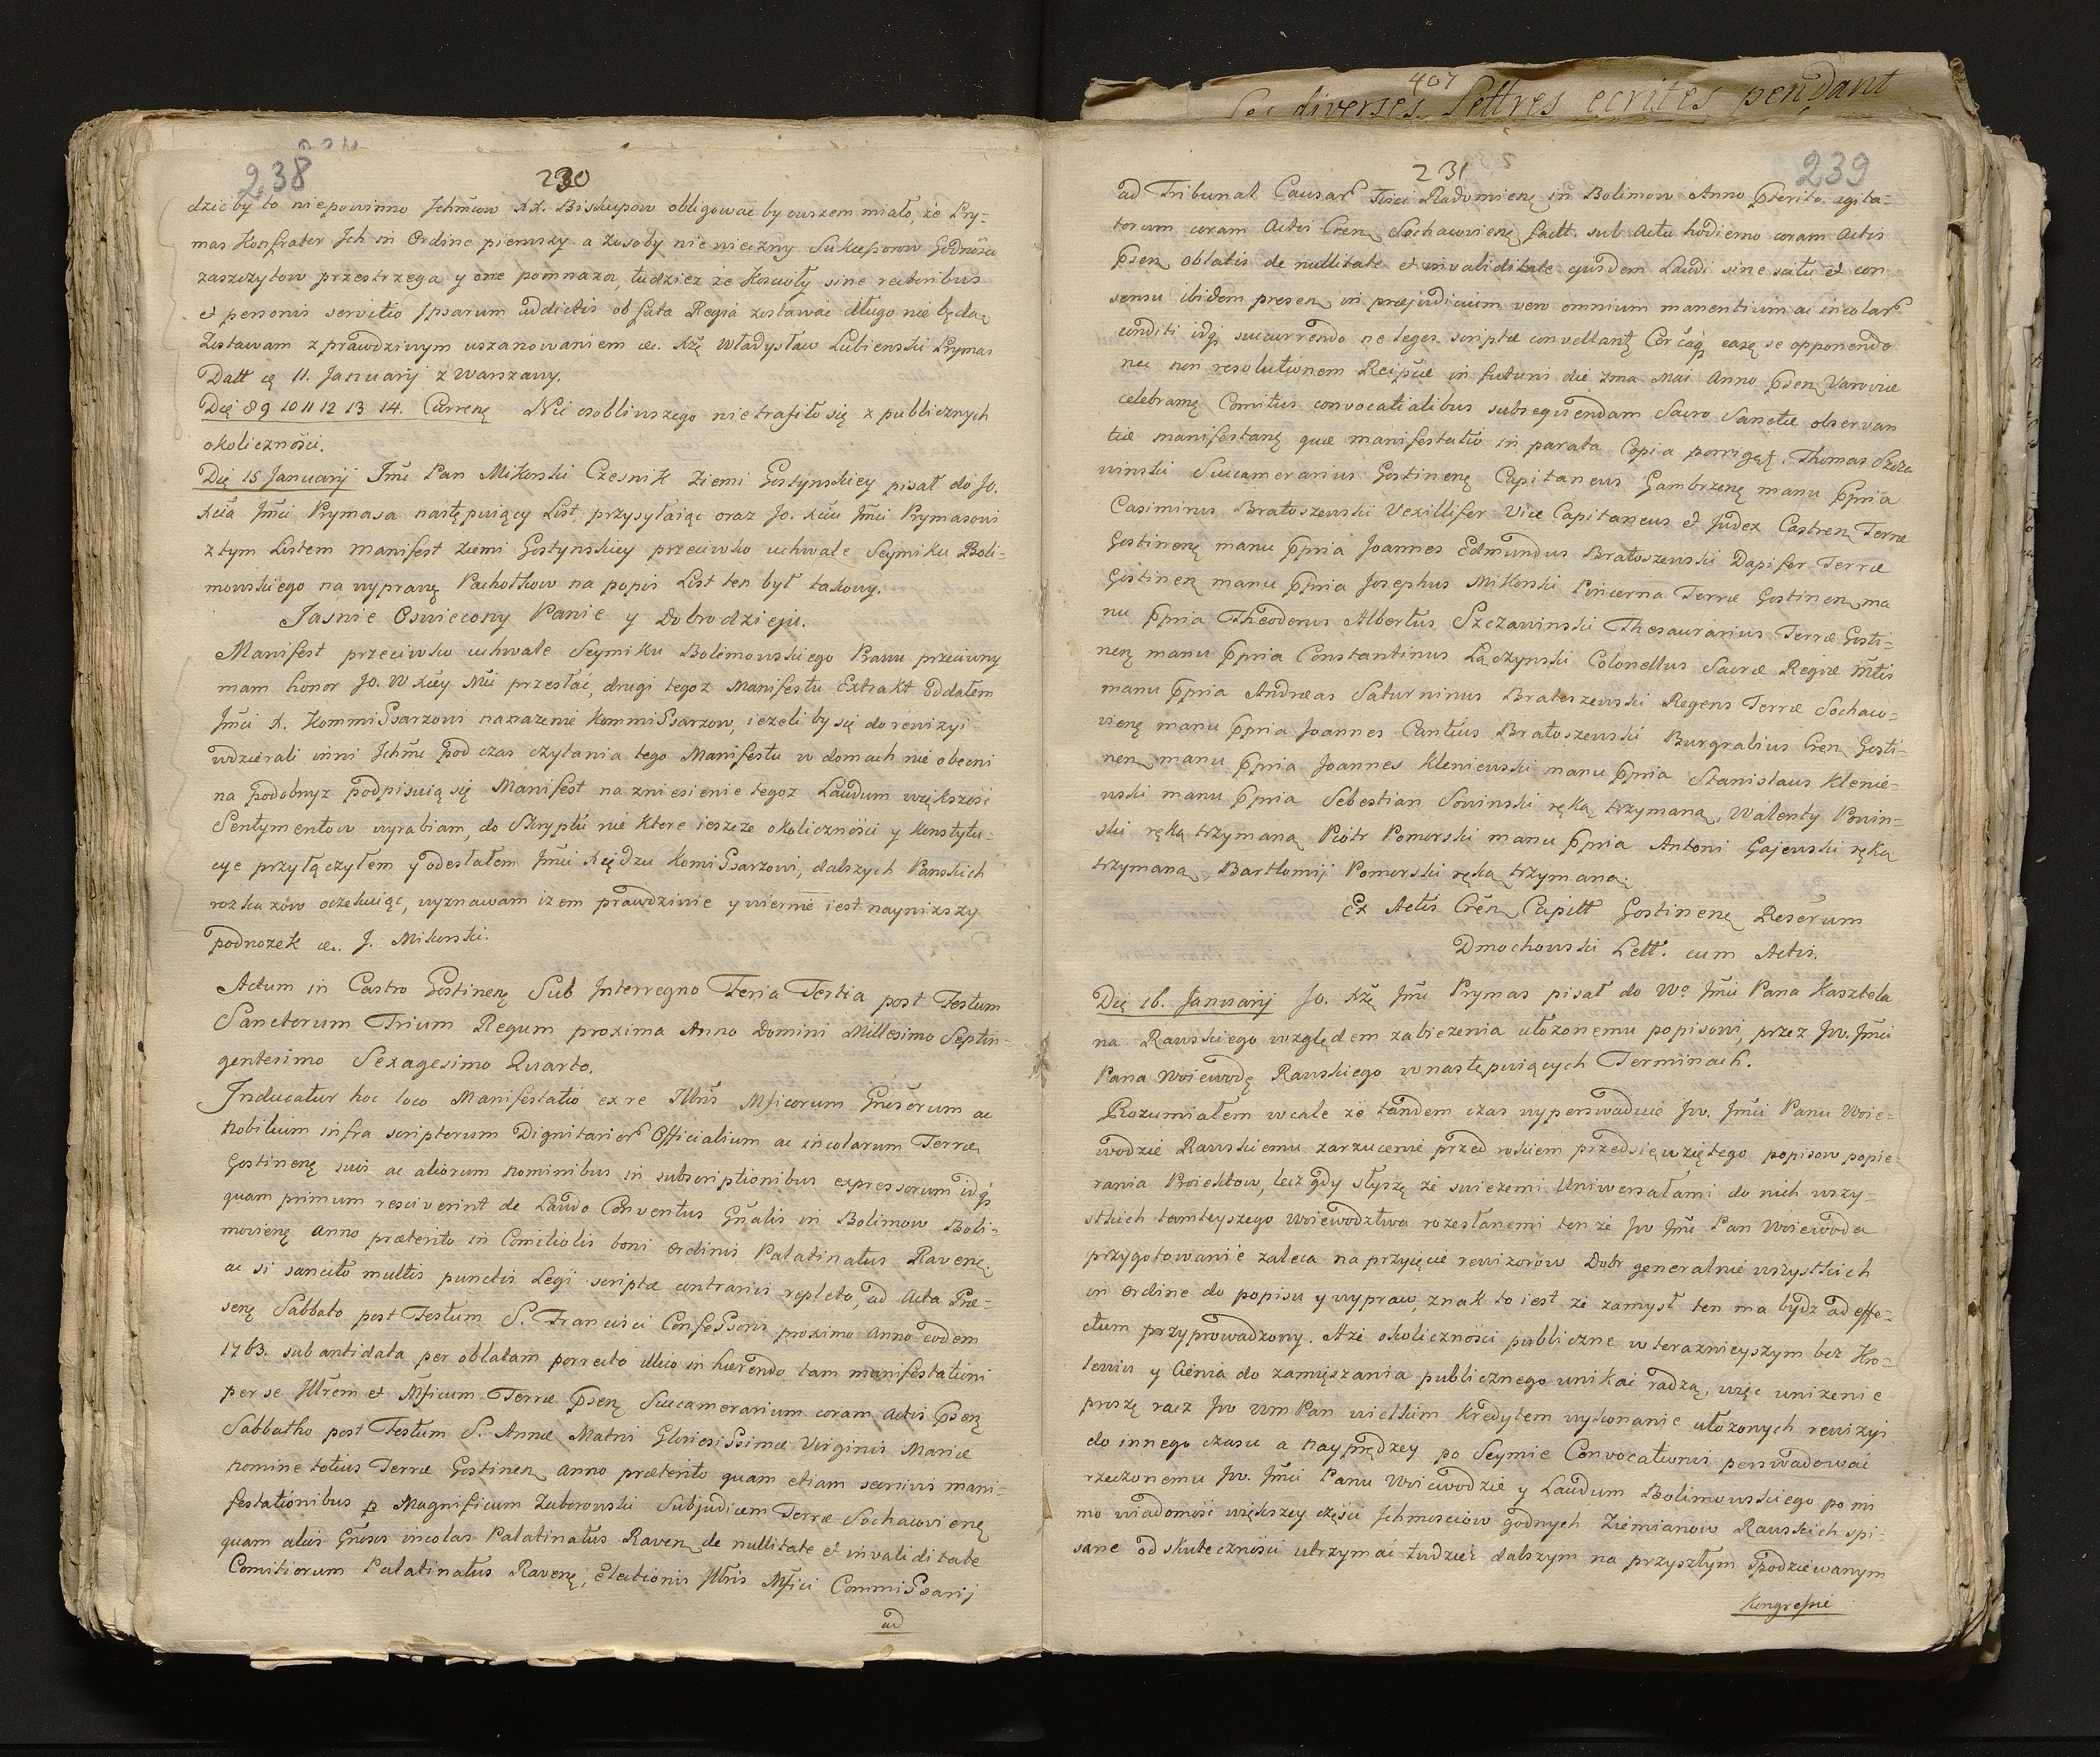 407
diverses Lettres ecrites pendant
238
230
dzicby to niepowinno Jchmciow XX. Biskupow obligowac by owszem miało, że Pry-
mas Konfrater Jch in Ordine pierwszy a zosoby niewieczny Sukcessorow Godnosci
zaszczytow przestrzega y one pomnaza, tudziez że Koscioły sine rectoribus
et personis servitio Ipsarum addictis ob fata Regia zostawac długo nie będą
Zostawam z prawdziwym uszanowaniem &c. Xżę Władysław Lubienski Prymas
Datt ą 11. Januarij z Warszawy.
Dię 8 9 10 11 12 13 14. Currenę Nic osobliwszego nie trafiło się z publicznych
okolicznosci.
Dię 15 Januarij Jmć Pan Mikorski Czesnik Ziemi Gostynskiey pisał do Jo.
Xcia Jmci Prymasa następuiący List, przysyłaiąc oraz Jo. Xciu Jmci Prymasowi
z tym Listem manifest ziemi Gostynskiey przeciwko uchwale Seymiku Boli-
mowskiego na wyprawę Pachołkow na popis List ten był takowy.
Jasnie Oswiecony Panie y Dobrodzieju.
Manifest przeciwko uchwale Seymiku Bolimowskiego Prawu przeciwny
mam honor Jo. W Xcey Mci przesłać, drugi tegoz Manifestu Extrakt oddałem
Jmci X. Kommissarzowi narazenie Kommissarzow, iezeli by się do rewizyi
wdzierali inni Jchmć pod czas czytania tego Manifestu w domach nie obecni
na podobnyz podpisuią się Manifest na zniesienie tegoz Laudum większosc
Sentymentow wyrabiam, do Skryptu nie ktore ieszcze okolicznosci y konstytu-
cye przyłączyłem y odesłałem Jmci Xiędzu Komissarzowi, dalszych Panskich
rozkazow oczekuiąc, wyznawam izem prawdziwie y wiernie iest naynizszy
podnozek &c. J. Mikorski.
Actum in Castro Gostinenę Sub Interregno Feria Tertia post Festum
Sanctorum Trium Regum proxima Anno Domini Millesimo Septin-
gentesimo Sexagesimo Quarto.
Inducatur hoc loco Manifestatio ex re Illris Mficorum Gnserorum ac
Nobilium infra scriptorum Dignitarior Officialium ac incolarum Terræ
Gostinenę suis ac aliorum nominibus in subscriptionibus expressorum idq
quam primum resciverint de Laudo Conventus Gnalis in Bolimow Boli-
movienę Anno præterito in Comitiolis boni ordinis Palatinatus Ravenę
ac si sancito multis punctis Legi scriptæ contrariis repleto, ad Acta Præ-
senę Sabbato post Festum S. Francisci Confessoris proximo Anno eodem
1763. sub antidata per oblatam porrecto illico inhærendo, tam manifestationi
per se Illrem et Mficum Terræ Psenę Succamerarium coram Actis Psenę
Sabbatho post Festum S. Annæ Matris Gloriosissimæ Virginis Mariæ
nomine totius Terræ Gostinen Anno præterito quam etiam secrivis mani-
festationibus p Magnificum Zaborowski Subjudicem Terræ Sochacovienę
quam alios Gnsos incolas Palatinatus Raven de nullitate et invaliditate
Comitiorum Palatinatus Ravenę, Electionis Illris Mfici Commissarij
ad
231
239
ad Tribunal Causar Fisci Radomienę in Bolimow Anno Pterito agita-
torum coram Actis Cren Sochacovienę factt. sub Actu hodierno coram Actis
Psen oblatis de nullitate et invaliditate ejusdem Laudi sine scitu et con
sensu ibidem presen in præjudicium vero omnium manentium ac incolar
conditi idq succurrendo ne leges scriptæ convellantę easę se opponendo
nec non resolutionem Reipcæ in futuri die 7ma Mai Anno Psen Varoviæ
celebramę Comitiis convocatialibus subsequendam Sacro Sanctæ observan
tiæ manifestanę quæ manifestatio in parata Copia porrigętę. Thomas Szcza
winski Succamerarius Gostinenę Capitaneus Gąmbrzenę manu ppria
Casimirus Bratoszewski Vexillifer Vice Capitaneus et Judex Castren Terræ
Gostinenę manu ppria Joannes Edmundus Bratoszewski Dapifer Terræ
Gostinen manu ppria Josephus Mikorski Pincerna Terræ Gostinen ma
nu ppria Theodorus Albertus Szczawinski Thesaurarius Terræ Gosti-
nenę manu ppria Constantinus Łączynski Colonellus Sacræ Regiæ Mtis
manu ppria Andreas Saturninus Bratoszewski Regens Terræ Sochaco-
vienę manu ppria Joannes Cantius Bratoszewski Burgrabius Cren Gosti-
nen manu ppria Joannes Kleniewski manu ppria Stanislaus Klenie-
wski manu ppria Sebestian Sowinski ręką trzymaną, Walenty Pruin-
ski ręką trzymaną Piotr Pomorski manu ppria Antoni Gajewski ręką
trzymaną, Bartłomij Pomorski ręką trzymaną.
Ex Actis Cren Capitt Gostinenę Reserum
Dmochowski Lett. cum Actis.
Dię 16. Januarij Jo. Xżę Jmć Prymas pisał do Wo Jmci Pana Kasztela
na Rawskiego względem zabieżenia ułożonemu popisowi, przez Jw. Jmci
Pana Woiewodę Rawskiego w następuiących Terminach.
Rozumiałem wcale że tandem czas wyperswaduie Jw. Jmci Panu Woie-
wodzie Rawskiemu zarzucenie przed rokiem przedsięwziętego popisow popie-
rania Proiektow, lecz gdy słyszę że swiezemi Uniwersałami do nich wszy-
stkich tamteyszego Woiewodztwa rozesłanemi ten że Jw Jmć Pan Woiewoda
przygotowanie zaleca na przyięcie rewizorow Dobr generalnie wszystkich
in ordine do popisu y wypraw, znak to iest że zamysł ten ma bydz ad effe-
ctum przyprowadzony. Aże okolicznosci publiczne w teraznieyszym bez Kro-
lewiu y cienia do zamięszania publicznego unikac radzą, więc unizenie
proszę racz Jw Wm Pan wielkim Kredytem wykonanie ułozonych rewizyi
do innego czasu a nayprędzey po Seymie Convocationis perswadowac
rzeczonemu Jw. Jmci Panu Woiewodzie y Laudum Bolimowskiego po mi
mo wiadomosć większey częsci Jchmosciow godnych Ziemianow Rawskich spi-
sane od skutecznosci utrzymac tudziez dalszym na przyszłym spodziewanym
Kongressie